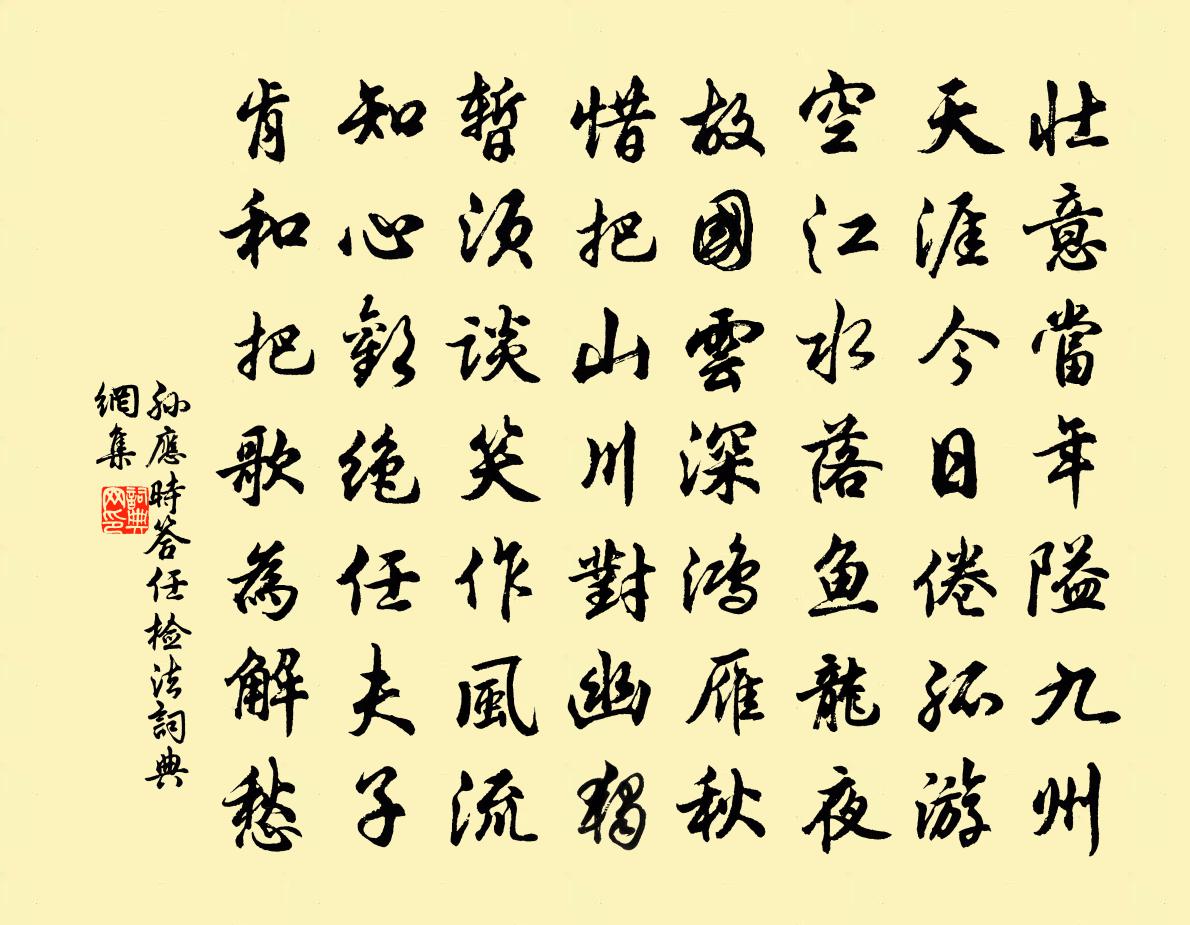 壮意當年隘九州
天涯今日倦孤游
空江水落鱼龍夜
故國雲深鴻雁秋
惜把山川對幽獨
暫須談笑作風流
知心歡絶任夫子
肯和把歌為解愁
孫應時答任檢法詞典
網集
詞典网印